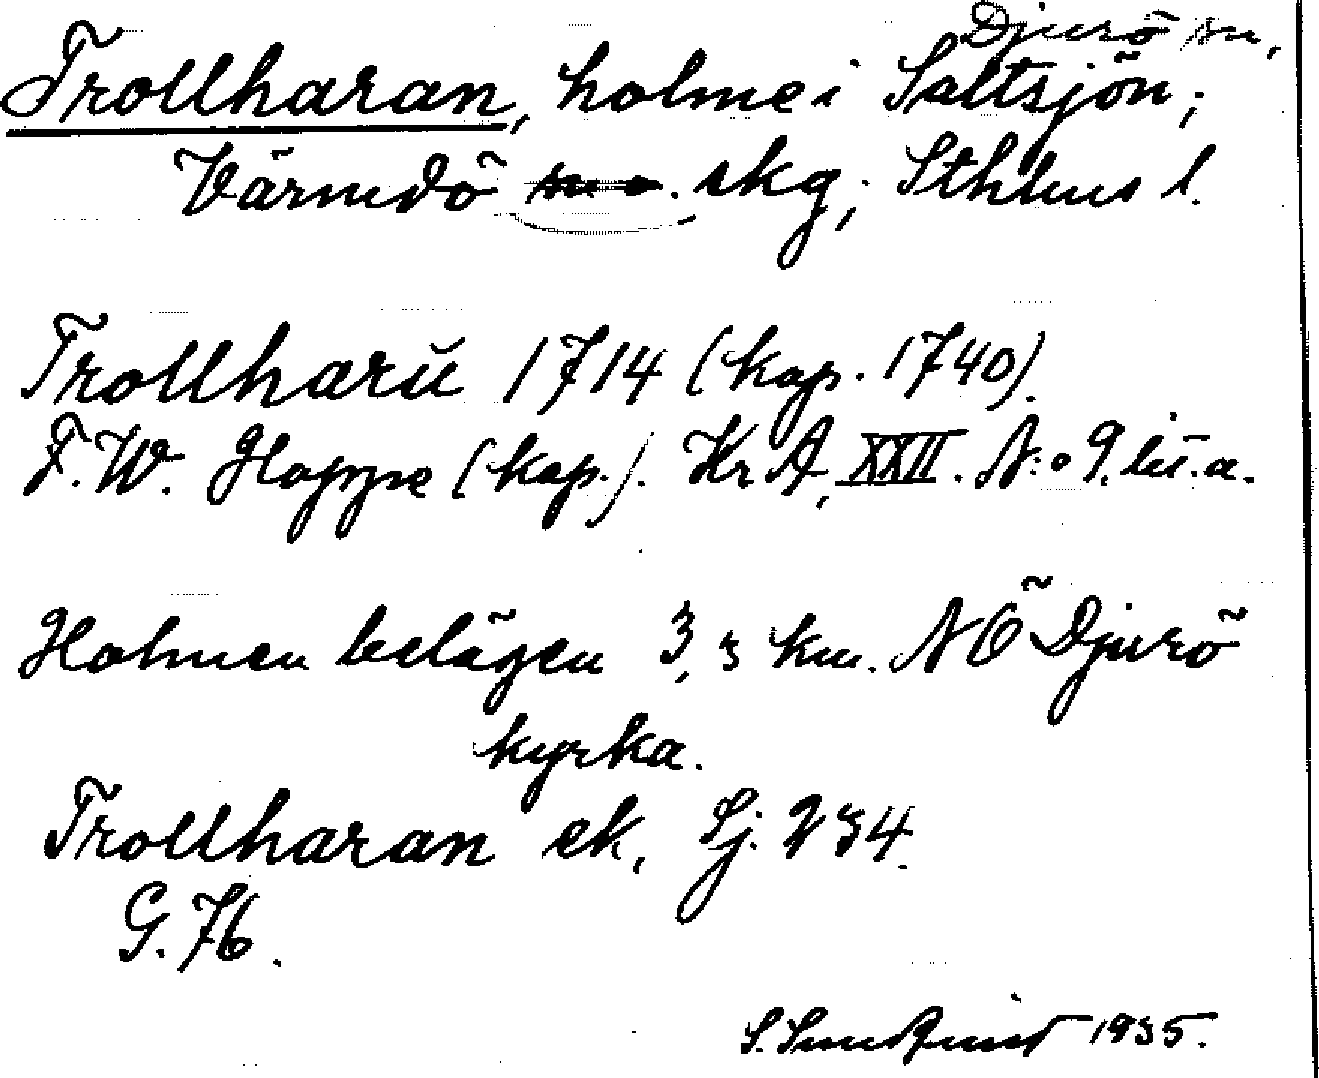 Djurö sn,
Trollharan, holme i Saltsjön;
Värmdö skg; Sthlms l.
Trollharŭ 1714 (kop. 1740).
F. W. Hoppe (kop.). Kr A, XXII. N:o 9. lit. a.
Holmen belägen 3,3 km. NÖ Djurö
kyrka.
Trollharan ek, Sj. 234.
G. 76.
S. Sundqvist 1935.